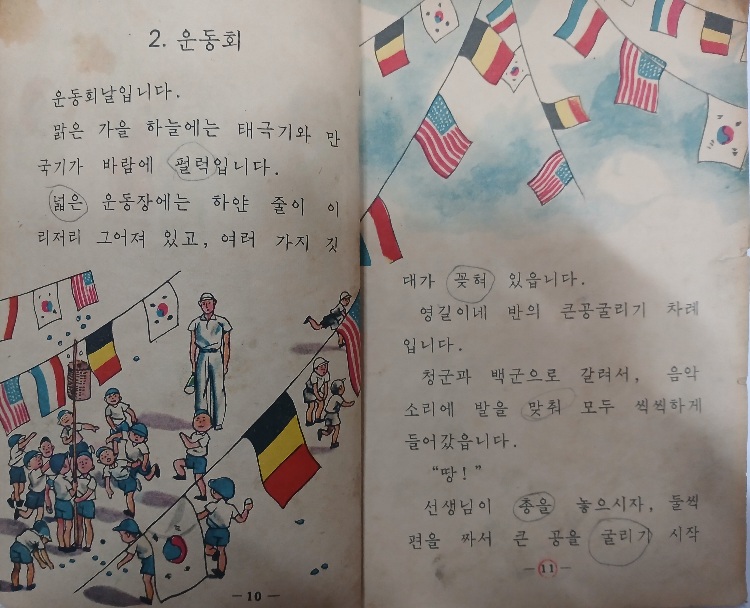 2. 운동회
운동회날입니다.
맑은 가을 하늘에는 태극기와 만
국기가 바람에 펄럭입니다.
넓은 운동장에는 하얀 줄이 이
리저리 그어져 있고, 여러 가지 깃
-10-
대가 꽂혀 있읍니다.
영길이네 반의 큰공굴리기 차례
입니다.
청군과 백군으로 갈려서, 음악
소리에 발을 맞춰 모두 씩씩하게
들어갔읍니다.
“땅!”
선생님이 총을 놓으시자, 둘씩
편을 짜서 큰 공을 굴리기 시작
-11-